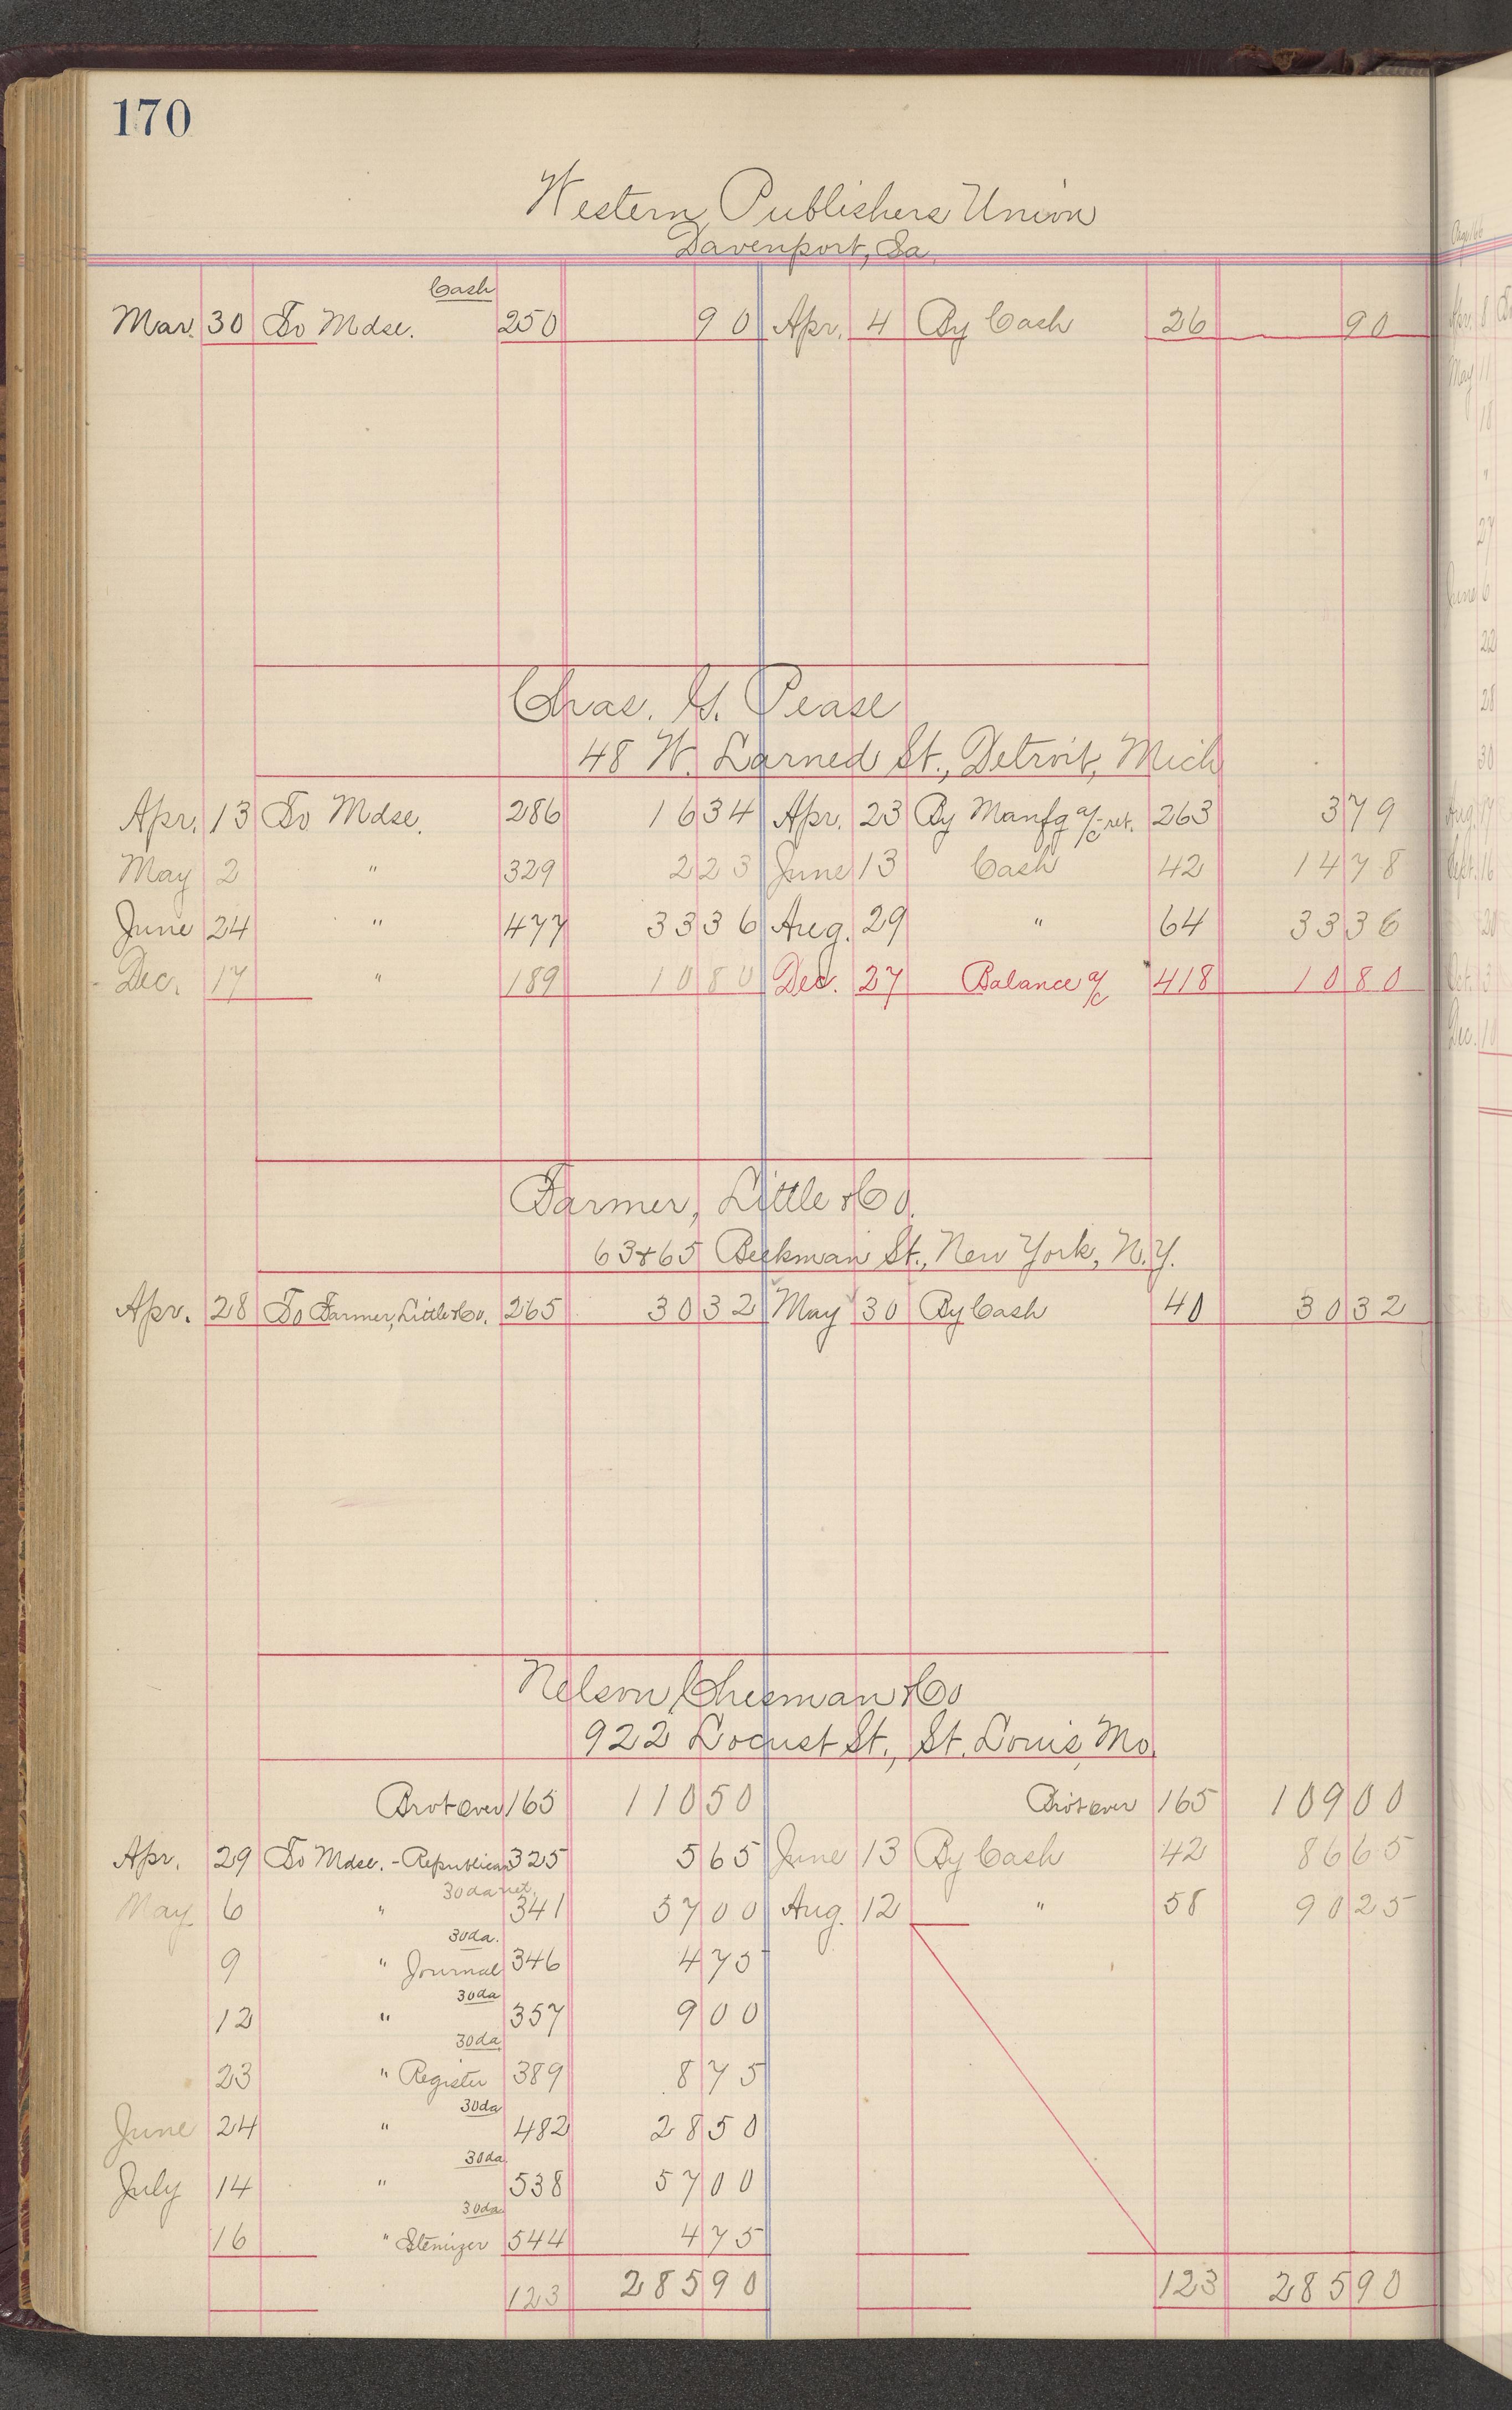 170
Western Publishers Union
Davenport, Ia.
Cash
Mar. 30 To Mdse. 250 90 Apr. 4 By Cash 26 90
Chas. G. Pease
48 W. Larned St., Detroit, Mich
Apr. 13 To Mdse. 286 16 34 Apr. 23 By Manfg a/c-ret. 263 3 79
May 2 " 329 2 23 June 13 Cash 42 14 78
June 24 " 477 33 36 Aug. 29 " 64 33 36
Dec. 17 " 189 10 80 Dec. 27 Balance a/c 418 10 80
Farmer, Little & Co.
63 & 65 Beekman St., New York, N.Y.
Apr. 28 To Farmer, Little & Co. 265 30 32 May 30 By Cash 40 30 32
Nelson, Chesman & Co
922 Locust St., St. Louis, Mo.
Brot over 165 110 50 Brot over 165 109 00
Apr. 29 To Mdse. - Republican 325 5 65 June 13 By Cash 42 86 65
30 da net.
May 6 " 341 57 00 Aug. 12 " 58 90 25
30 da.
9 " Journal 346 4 75
30 da
12 " 357 9 00
30 da.
23 " Register 389 8 75
30 da
June 24 " 482 28 50
30 da.
July 14 " 538 57 00
30 da
16 " 544 4 75
123 285 90 123 285 90
Apr. 8
May 11
18
"
27
June 6
22
28
30
Aug. 17
Sept. 16
20
Oct. 3
Dec. 10